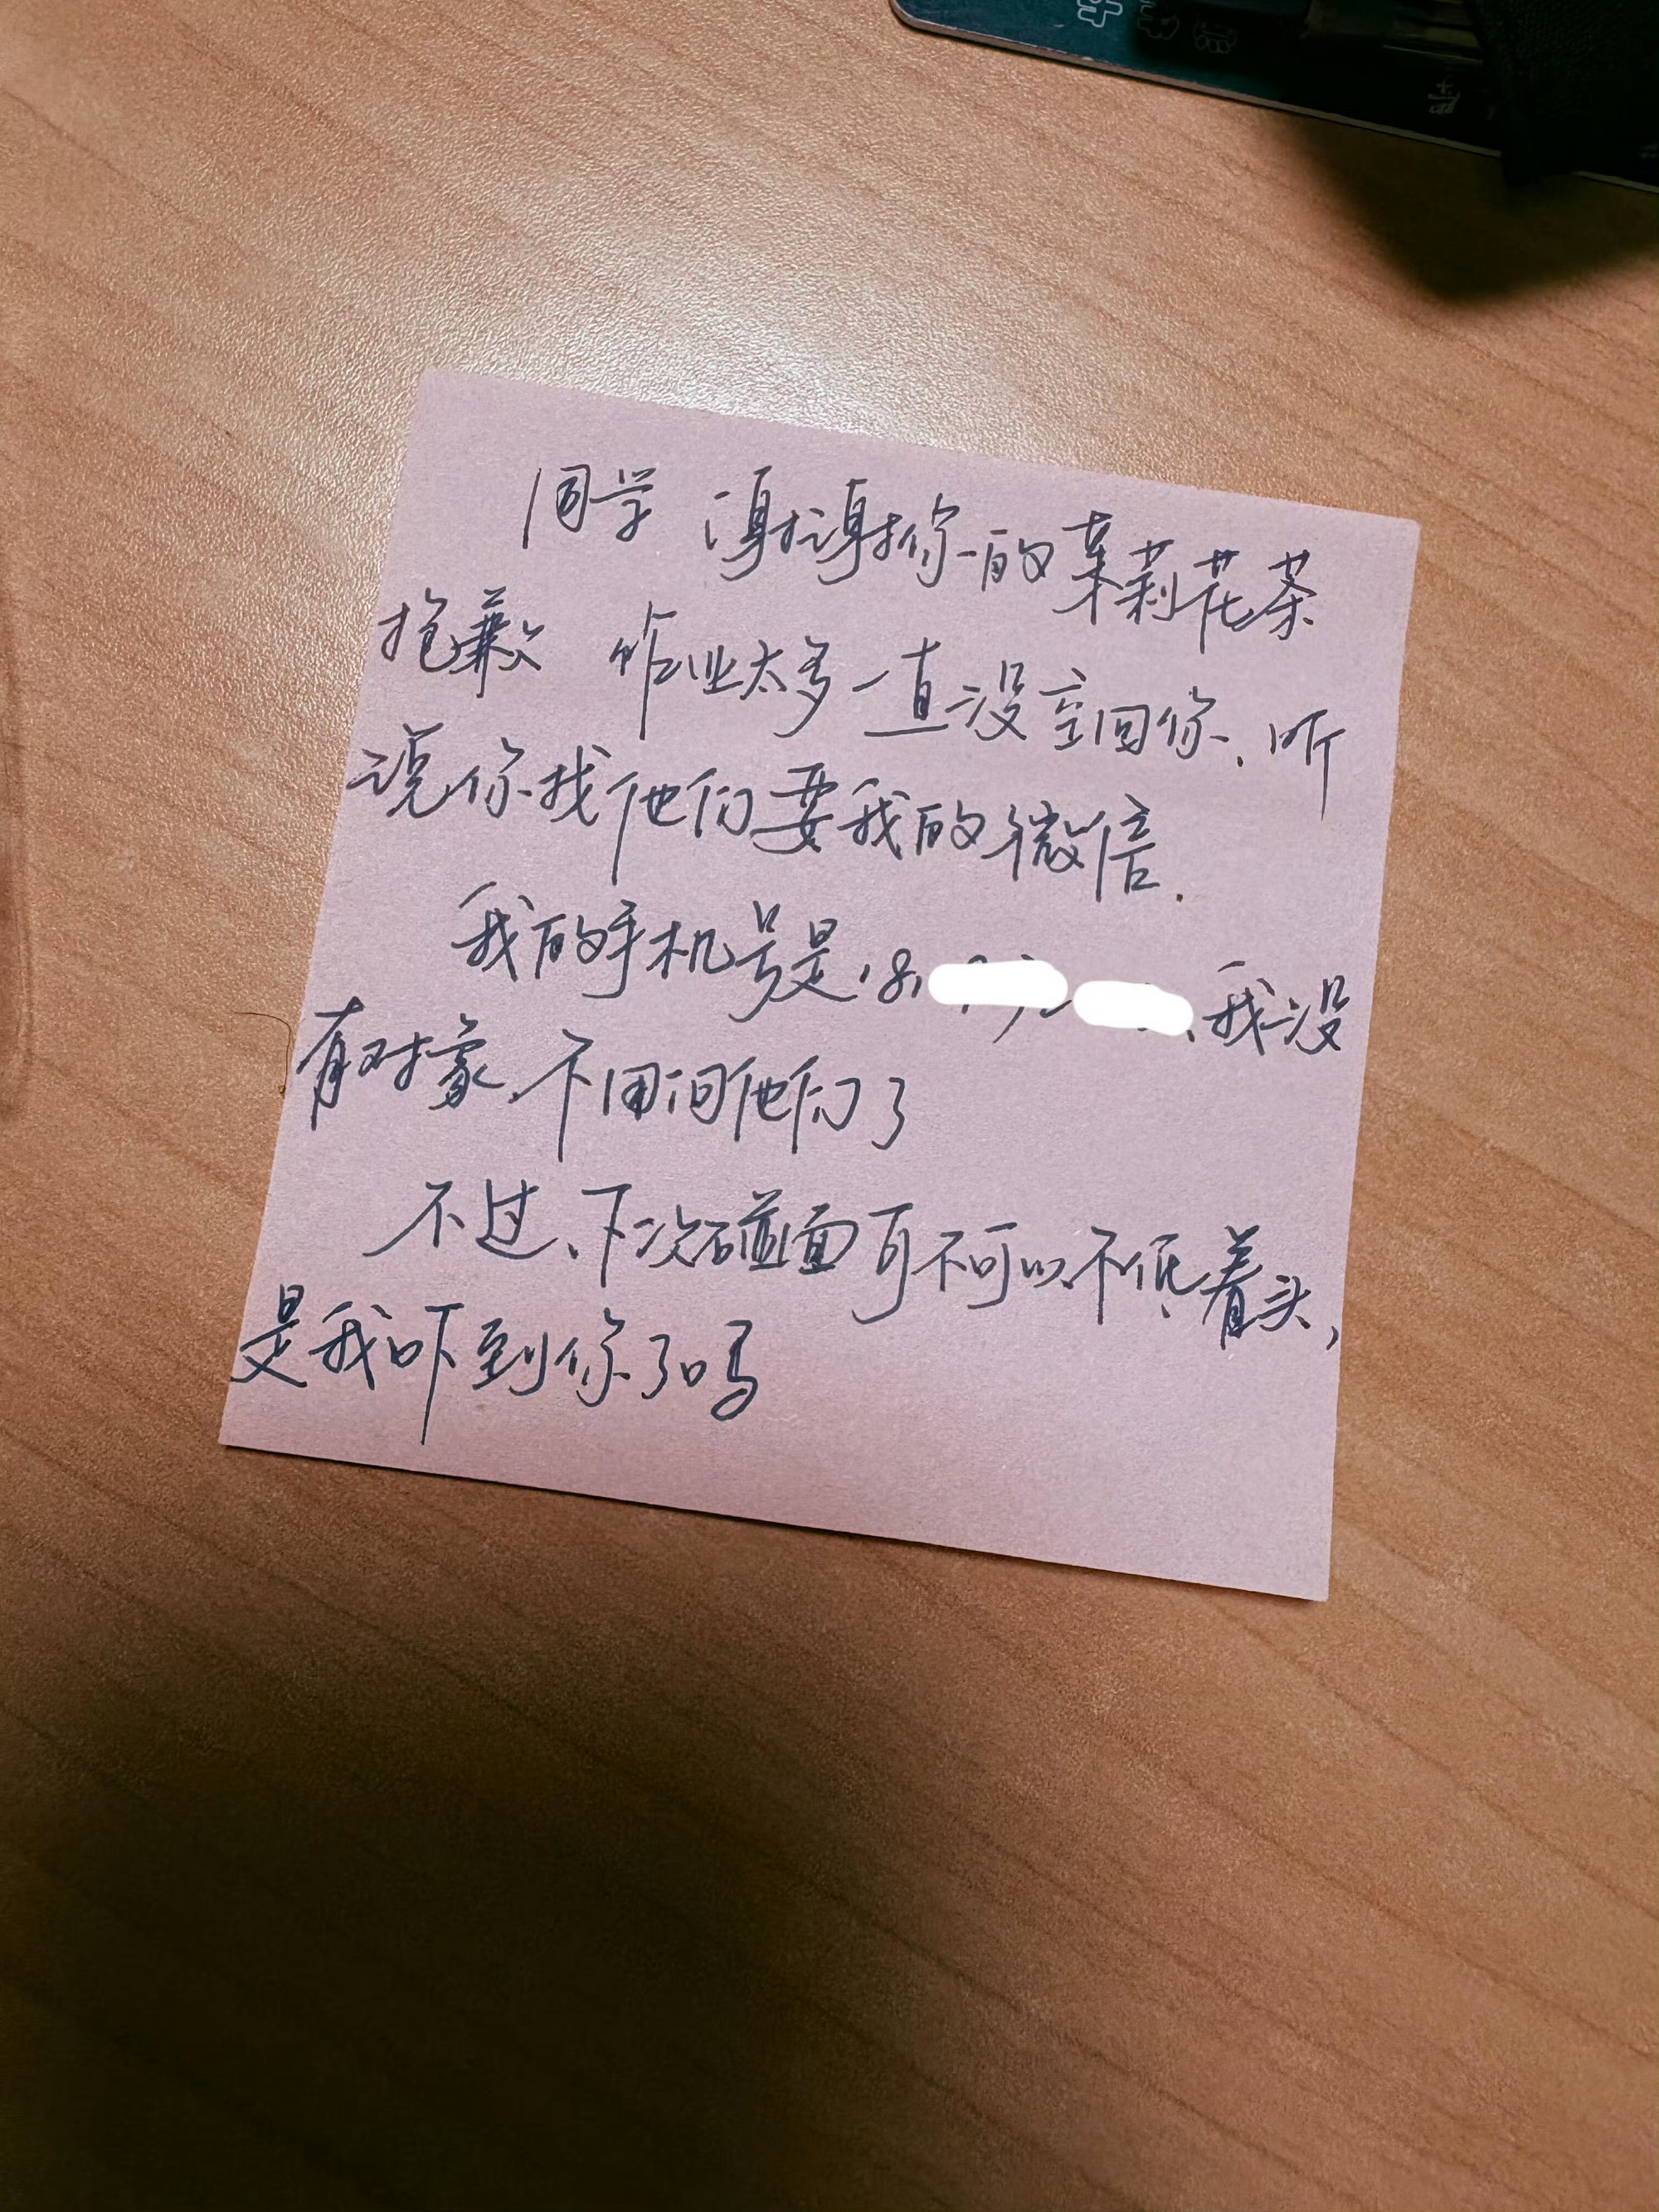 同学 谢谢你的茉莉花茶
抱歉 作业太多一直没空回你、听
说你找他们要我的微信.
我的手机号是181 、我没
有对象、不用问他们了
不过、下次碰面可不可以不低着头,
是我吓到你了吗